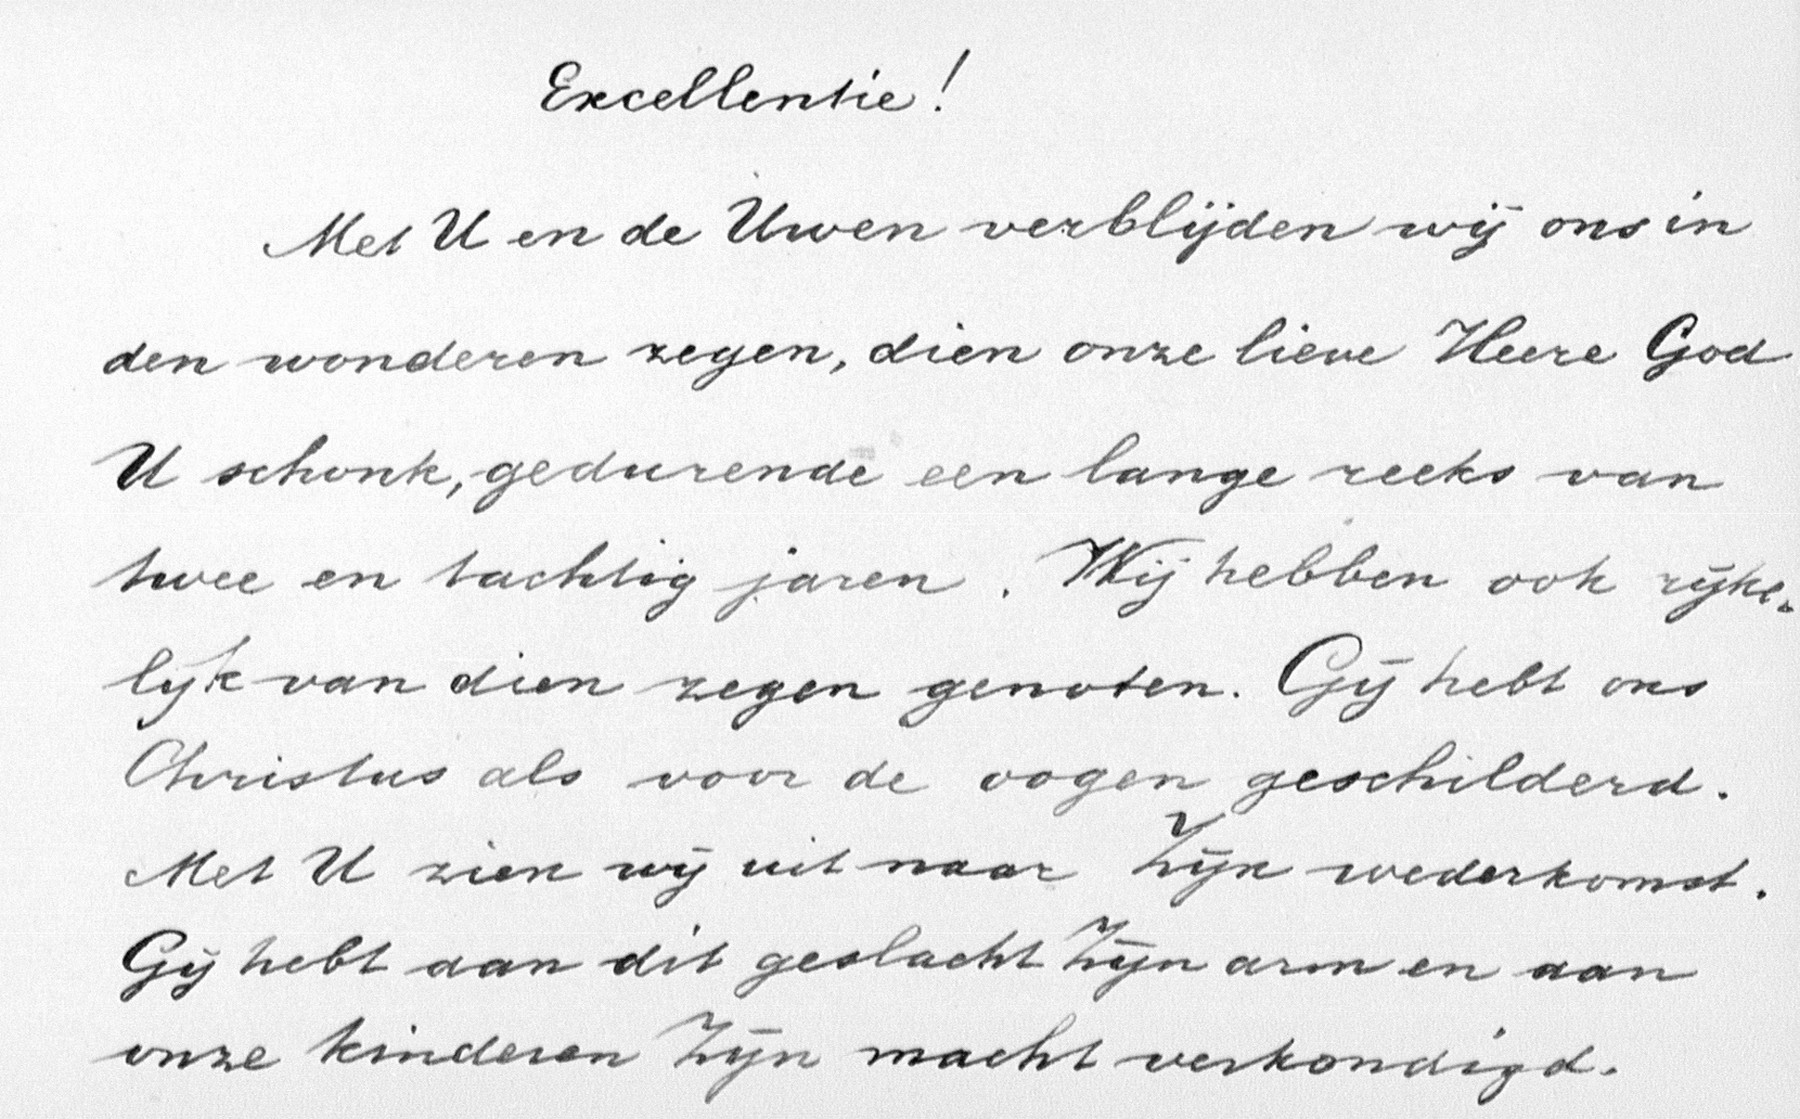 Excellentie!
Met U en de Uwen verblijden wij ons in
den wonderen zegen, dien onze lieve Heere God
U schonk, gedurende een lange reeks van
twee en tachtig jaren. Wij hebben ook rijke-
lijk van dien zegen genoten. Gij hebt ons
Christus als voor de oogen geschilderd.
Met U zien wij uit naar Zijn wederkomst.
Gij hebt aan dit geslacht Zijn arm en aan
onze kinderen Zijn macht verkondigd.